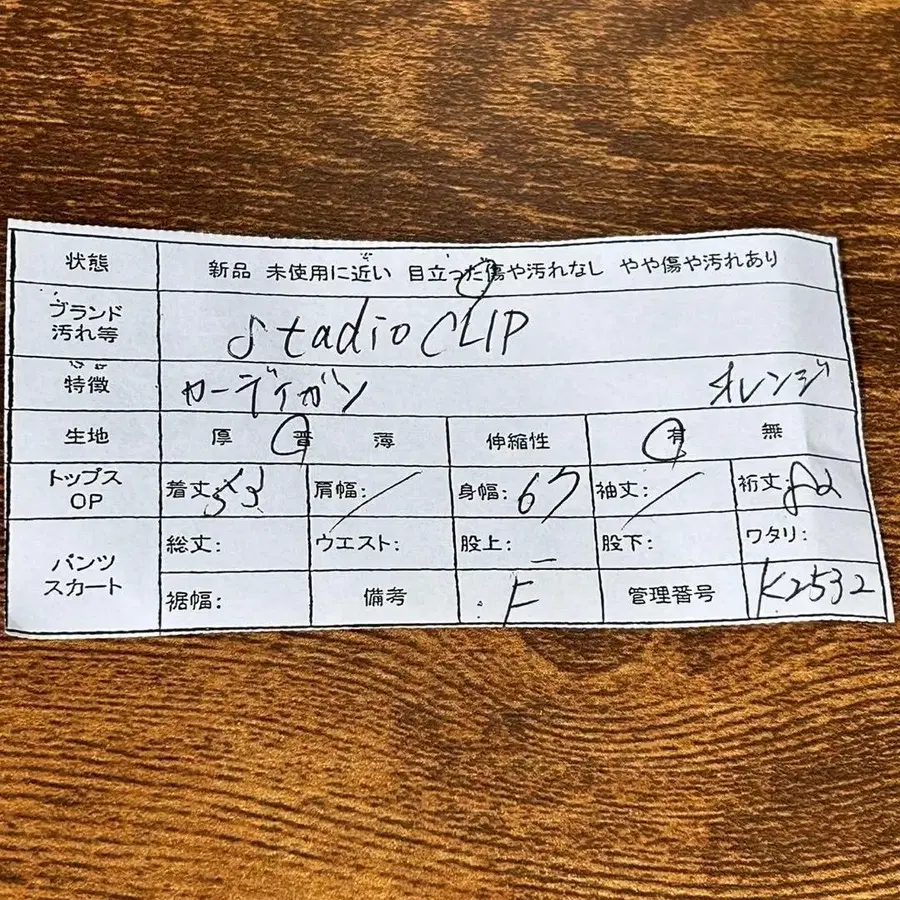 状態 新品 未使用に近い 目立った傷や汚れなし やや傷や汚れあり
ブランド
汚れ等 studio CLIP
特徴 カーディガン オレンジ
生地 厚 普 薄 伸縮性 有 無
トップス
OP 着丈: 53 肩幅: / 身幅: 67 袖丈: / 裄丈: 82
パンツ
スカート 総丈: ウエスト: 股上: 股下: ワタリ:
裾幅: 備考 F 管理番号 K2532